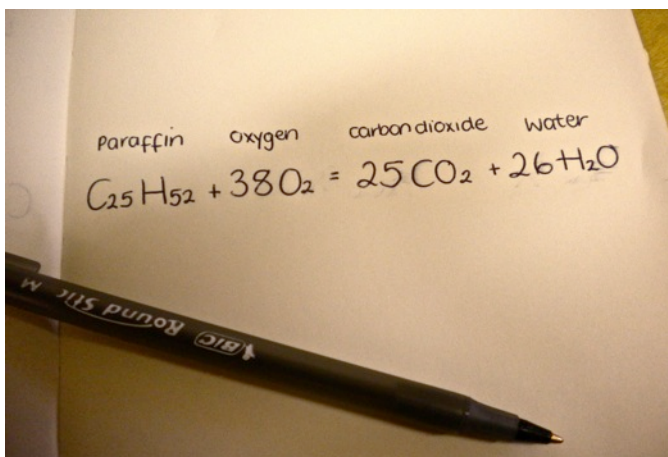 paraffin oxygen carbon dioxide water
C₂₅H₅₂ + 38O₂ = 25CO₂ + 26H₂O
BIC Round Stic M